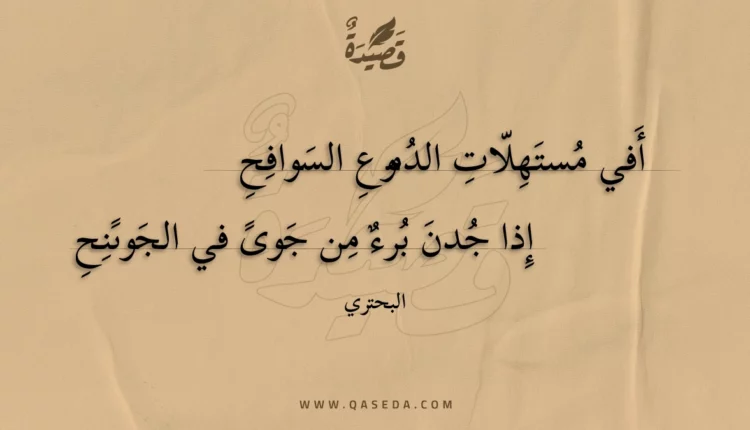 قَصِيْدَةٌ
أَفي مُستَهِلّاتِ الدُموعِ السَوافِحِ
إِذا جُدنَ بُرءٌ مِن جَوىً في الجَوىًنِحِ
البحتري
WWW.QASEDA.COM